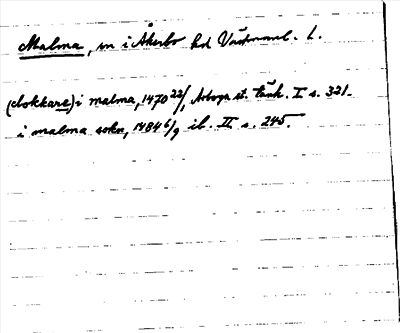 Malma, sn i Åkerbo hd Västmanl. L.
(clokkare) i malma, 1470 22/, Arboga st. tänk. I s. 321.
i malma sokn, 1484 6/9 ib. II s. 245.